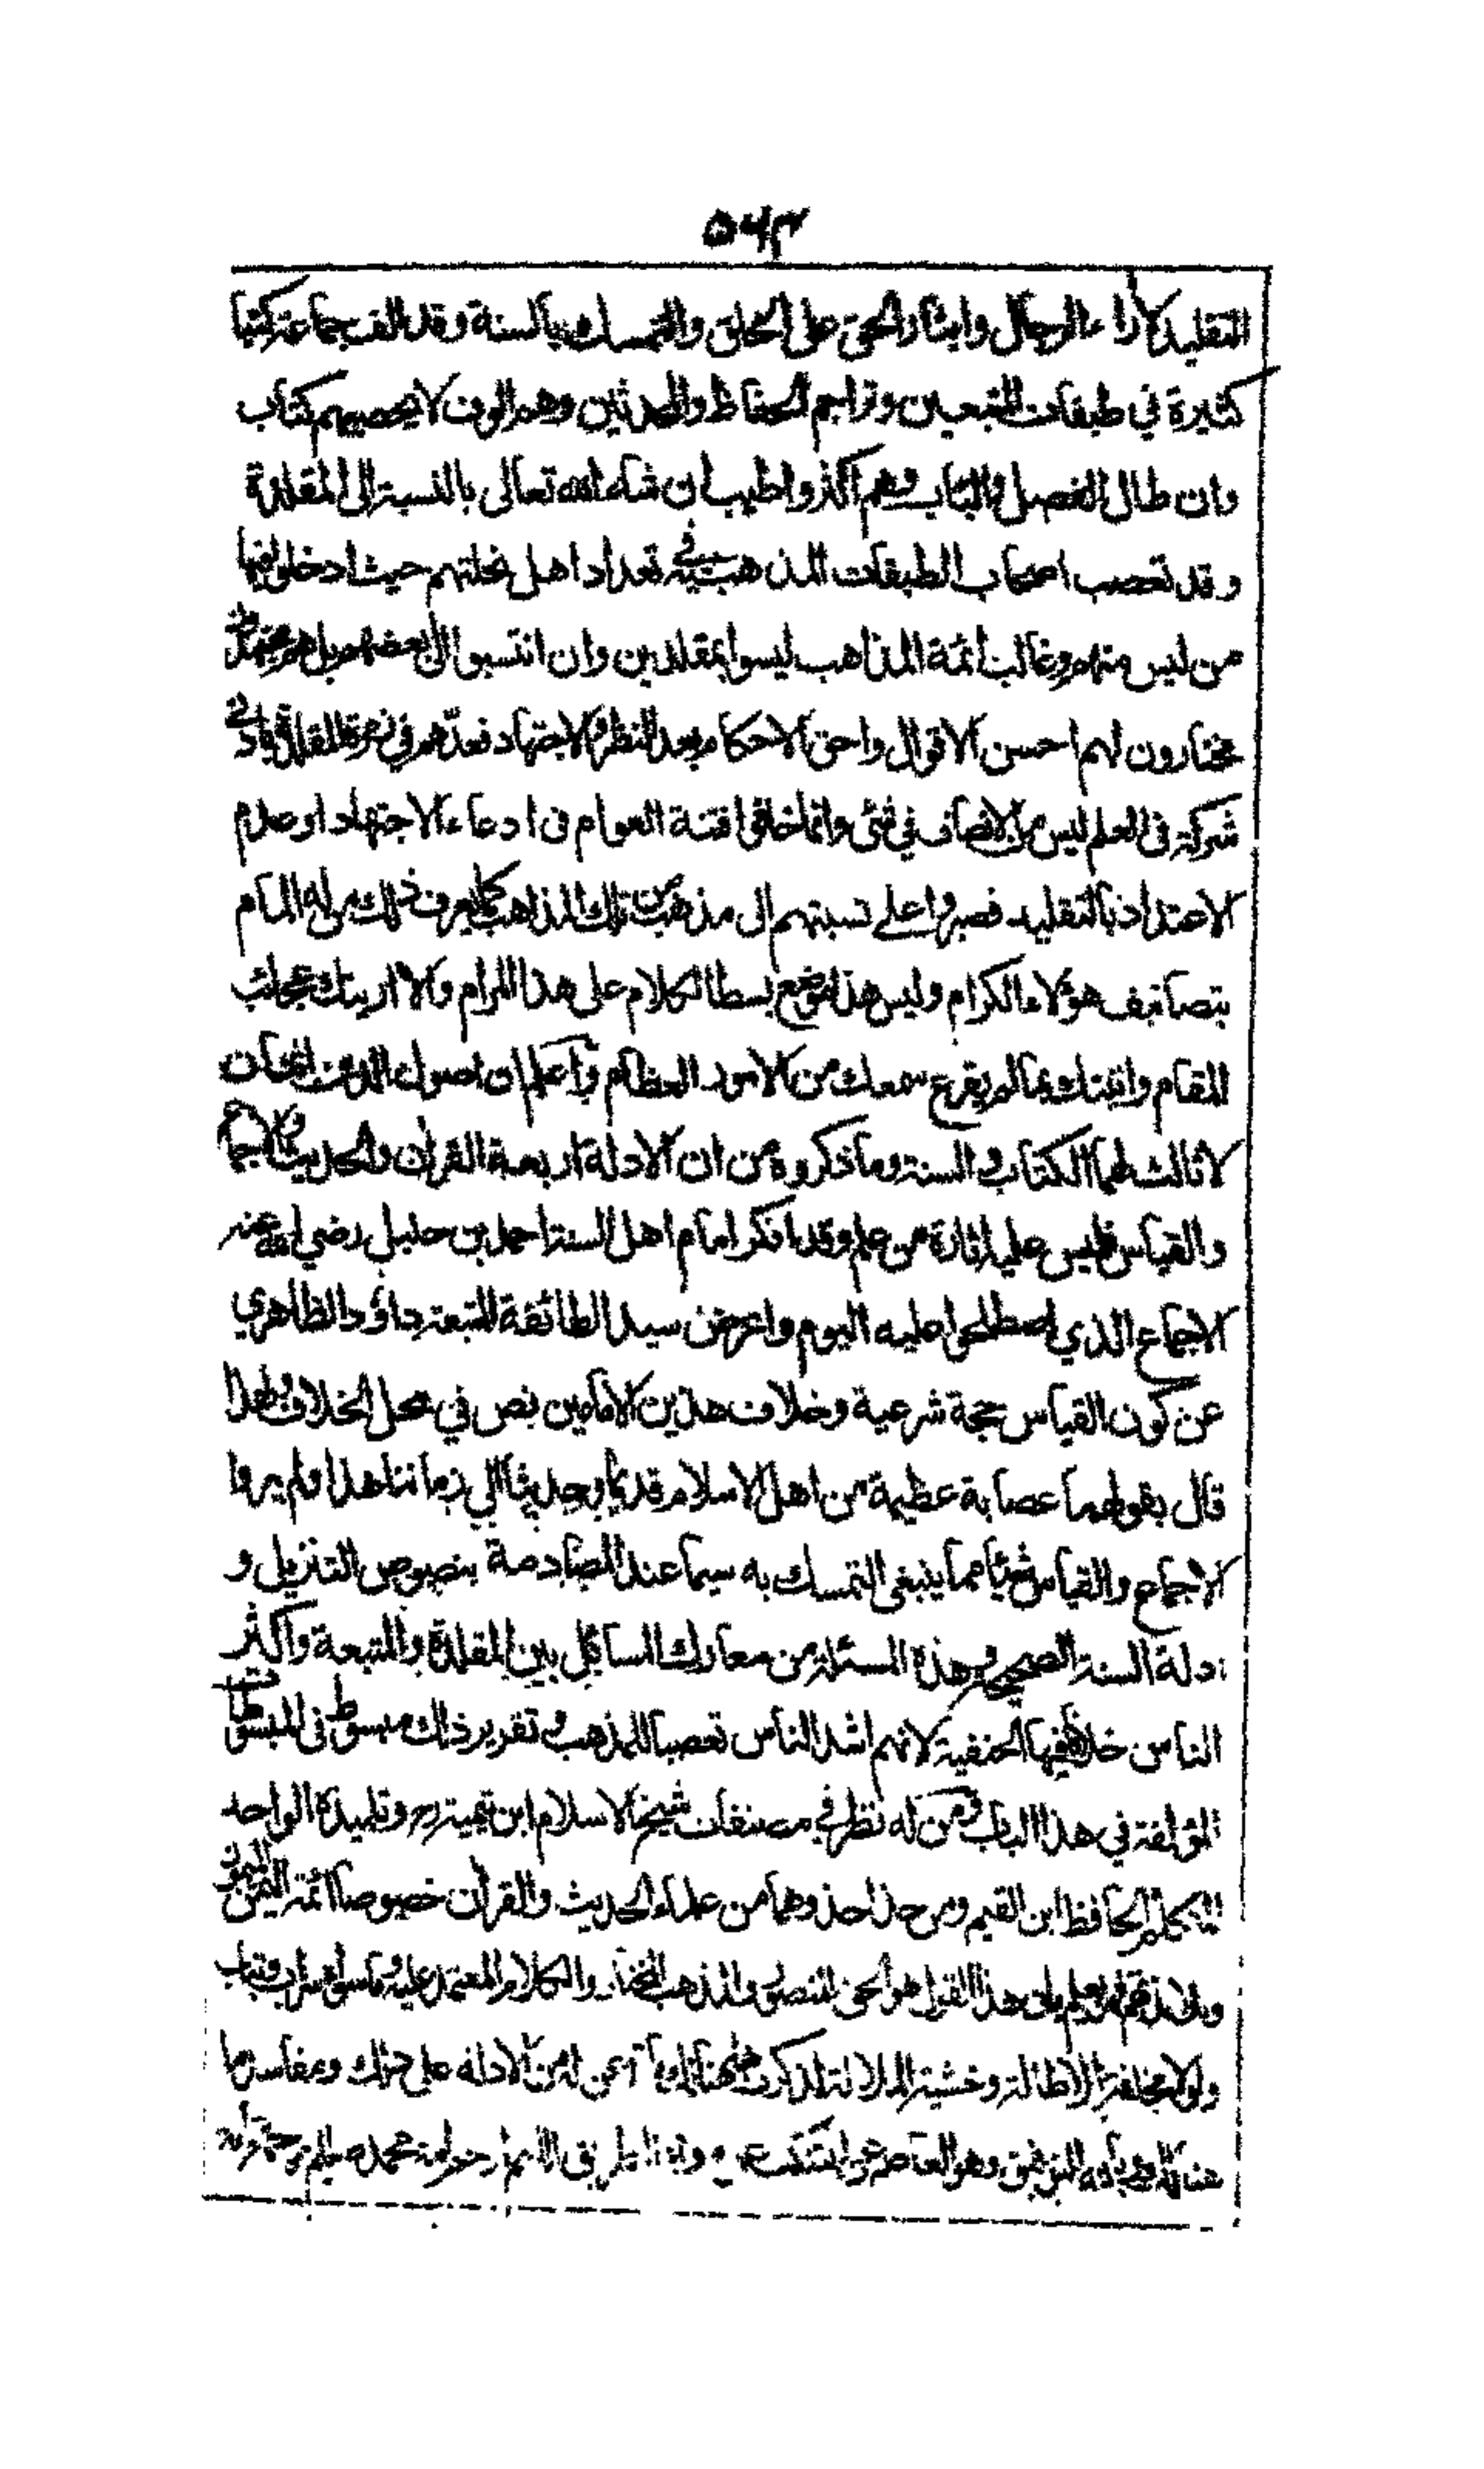 ٥٦٣
التقليد لاراء الرجال وايثار الحق على الخلق والتمسك بالسنة وقد الف جماعة كتبا
كثيرة في طبقات المتبعين وتراجم الحفاظ والمحدثين وهم الوف لا يحصيهم كتاب
وان طال الفصل والباب وهم اكثر واطيب ان شاء الله تعالى بالنسبة الى المقلدة
وقد تعصب اصحاب الطبقات المذهبية في تعداد اهل نحلتهم حيث ادخلوا فيها
من ليس منهم وغالب ائمة المذاهب ليسوا بمقلدين وان انتسبوا الى بعضهم بل هم مجتهدون
مختارون لهم احسن الاقوال واحق الاحكام بعد النظر والاجتهاد فعدّهم في زمرة المقلدة بادنى
شركة في العلم ليس من الانصاف في شئ وانما خافوا فتنة العوام في ادعاء الاجتهاد او عدم
الاعتداد بالتقليد فصبروا على نسبتهم الى مذهب من تلك المذاهب كما يعرف ذلك من له المام
بتصانيف هؤلاء الكرام وليس هذا موضع بسط الكلام على هذا المرام والا اريتك عجائب
المقام واتيتك بما لم يقرع سمعك من الامور العظام واعلم ان اصول الدين اثنان
لا ثالث لهما الكتاب والسنة وما ذكروه من ان الادلة اربعة القران والحديث والاجماع
والقياس فليس عليه اثارة من علم وقد انكر امام اهل السنة احمد بن حنبل رضي الله عنه
الاجماع الذي اصطلحوا عليه اليوم واعرض سيد الطائفة المتبعة داؤد الظاهري
عن كون القياس حجة شرعية وخلاف هذين الامامين نص في محل الخلاف ولهذا
قال بقولهما عصابة عظيمة من اهل الاسلام قديما وحديثا الى زماننا هذا ولم يروا
الاجماع والقياس شيئا مما ينبغي التمسك به سيما عند المصادمة بنصوص التنزيل و
ادلة السنة الصحيحة وهذه المسئلة من معارك المسائل بين المقلدة والمتبعة واكثر
الناس خلافا فيها الحنفية لانهم اشد الناس تعصبا للمذهب وتقرير ذلك مبسوط في المبسوطات
المؤلفة في هذا الباب ومن له نظر في مصنفات شيخ الاسلام ابن تيمية رح وتلميذه الواحد
المتكلم الحافظ ابن القيم ومن حذا حذوهما من علماء الحديث والقران خصوصا ائمة اليمن الميمون
يعلم بان هذا القول هو الحق المنصور والمذهب المختار والكلام المعتمد عليه وما سواه سراب
ولولا مخافة الاطالة وخشية الملالة لذكرت ههنا من الادلة على ذلك ومفاسد ما
هنالك وبالله التوفيق وهو العاصم عن